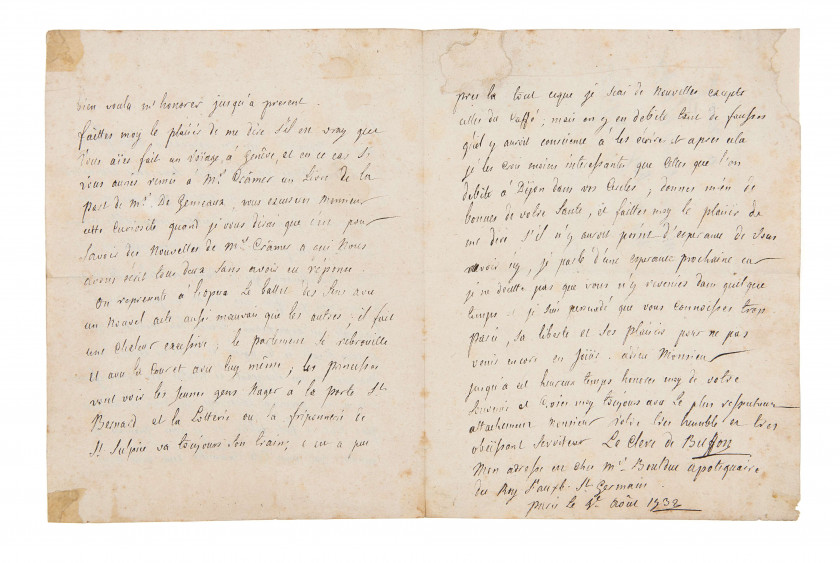 bien voulu m'honorer jusqu'a present.
faittes moy le plaisir de me dire s'il est vray que
vous aiés fait un voiage, à Genêve, et en ce cas si
vous auriés remis à Mr. Crâmer un Livre de la
part de Mr. De Gemeaux, vous excuserez Monsieur
cette curiosité quand je vous dirai que c'est pour
savoir des Nouvelles de Mr. Crâmer a qui Nous
avons écrit tous deux sans avoir eu réponse
On represente à l'opera Le ballet des Sens avec
un Nouvel acte aussi mauvais que les autres; il fait
une chaleur excessive; le parlement se rebrouille
et avec la Cour et avec luy même; les princesses
vont voir les jeunes gens Nager à la porte St.
Bernard et la Lotterie ou la friponnerie de
St. Sulpice va toujours son train; c'en a peu
pres la tout ceque je scai de Nouvelles excepté
celles du Caffé; mais on y en debite tant de fausses
qu'il y auroit conscience à les ecrire et apres cela
je les croi moins interessantes que celles que l'on
debite à Dijon dans vos Cercles; donnes m'en de
bonnes de votre Santé, et faittes moy le plaisir de
me dire s'il n'y auroit point d'esperance de vous
revoir icy, je parle d'une esperance prochaine car
je ne doutte pas que vous n'y reveniés dans quelque
temps je suis persuadé que vous connoisses trop
Paris, sa liberté et ses plaisirs pour ne pas
venir encore en joüir. adieu Monsieur
jusqu'a cet heureux temps honores moy de votre
souvenir et croies moy toujours avec le plus respectueux
attachement Monsieur votre tres humble et tres
obeissant serviteur Le Clerc de Buffon
Mon adresse est chez Mr. Boulduc apotiquaire
du Roy St. Germain
paris le Août 1732